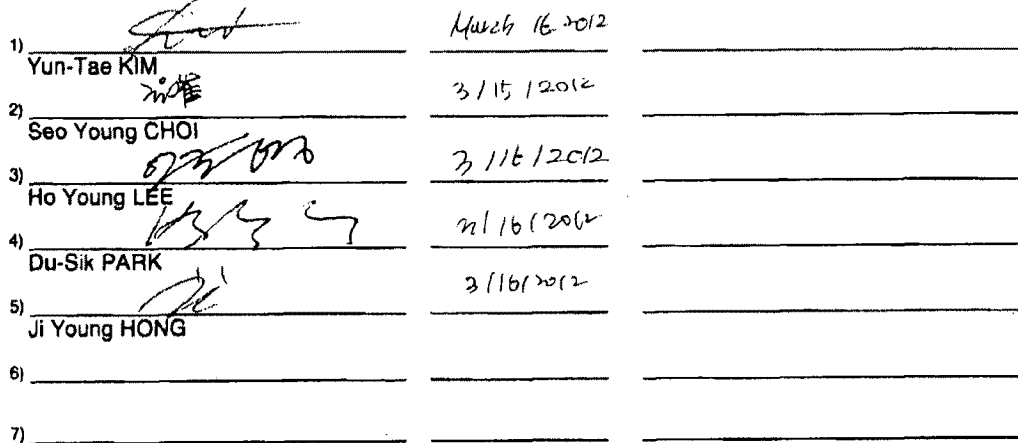 1) March 16 2012
Yun-Tae KIM
2) 3/15/2012
Seo Young CHOI
3) 3/16/2012
Ho Young LEE
4) /16/2012
Du-Sik PARK
5) 3/16/2012
Ji Young HONG
6)
7)